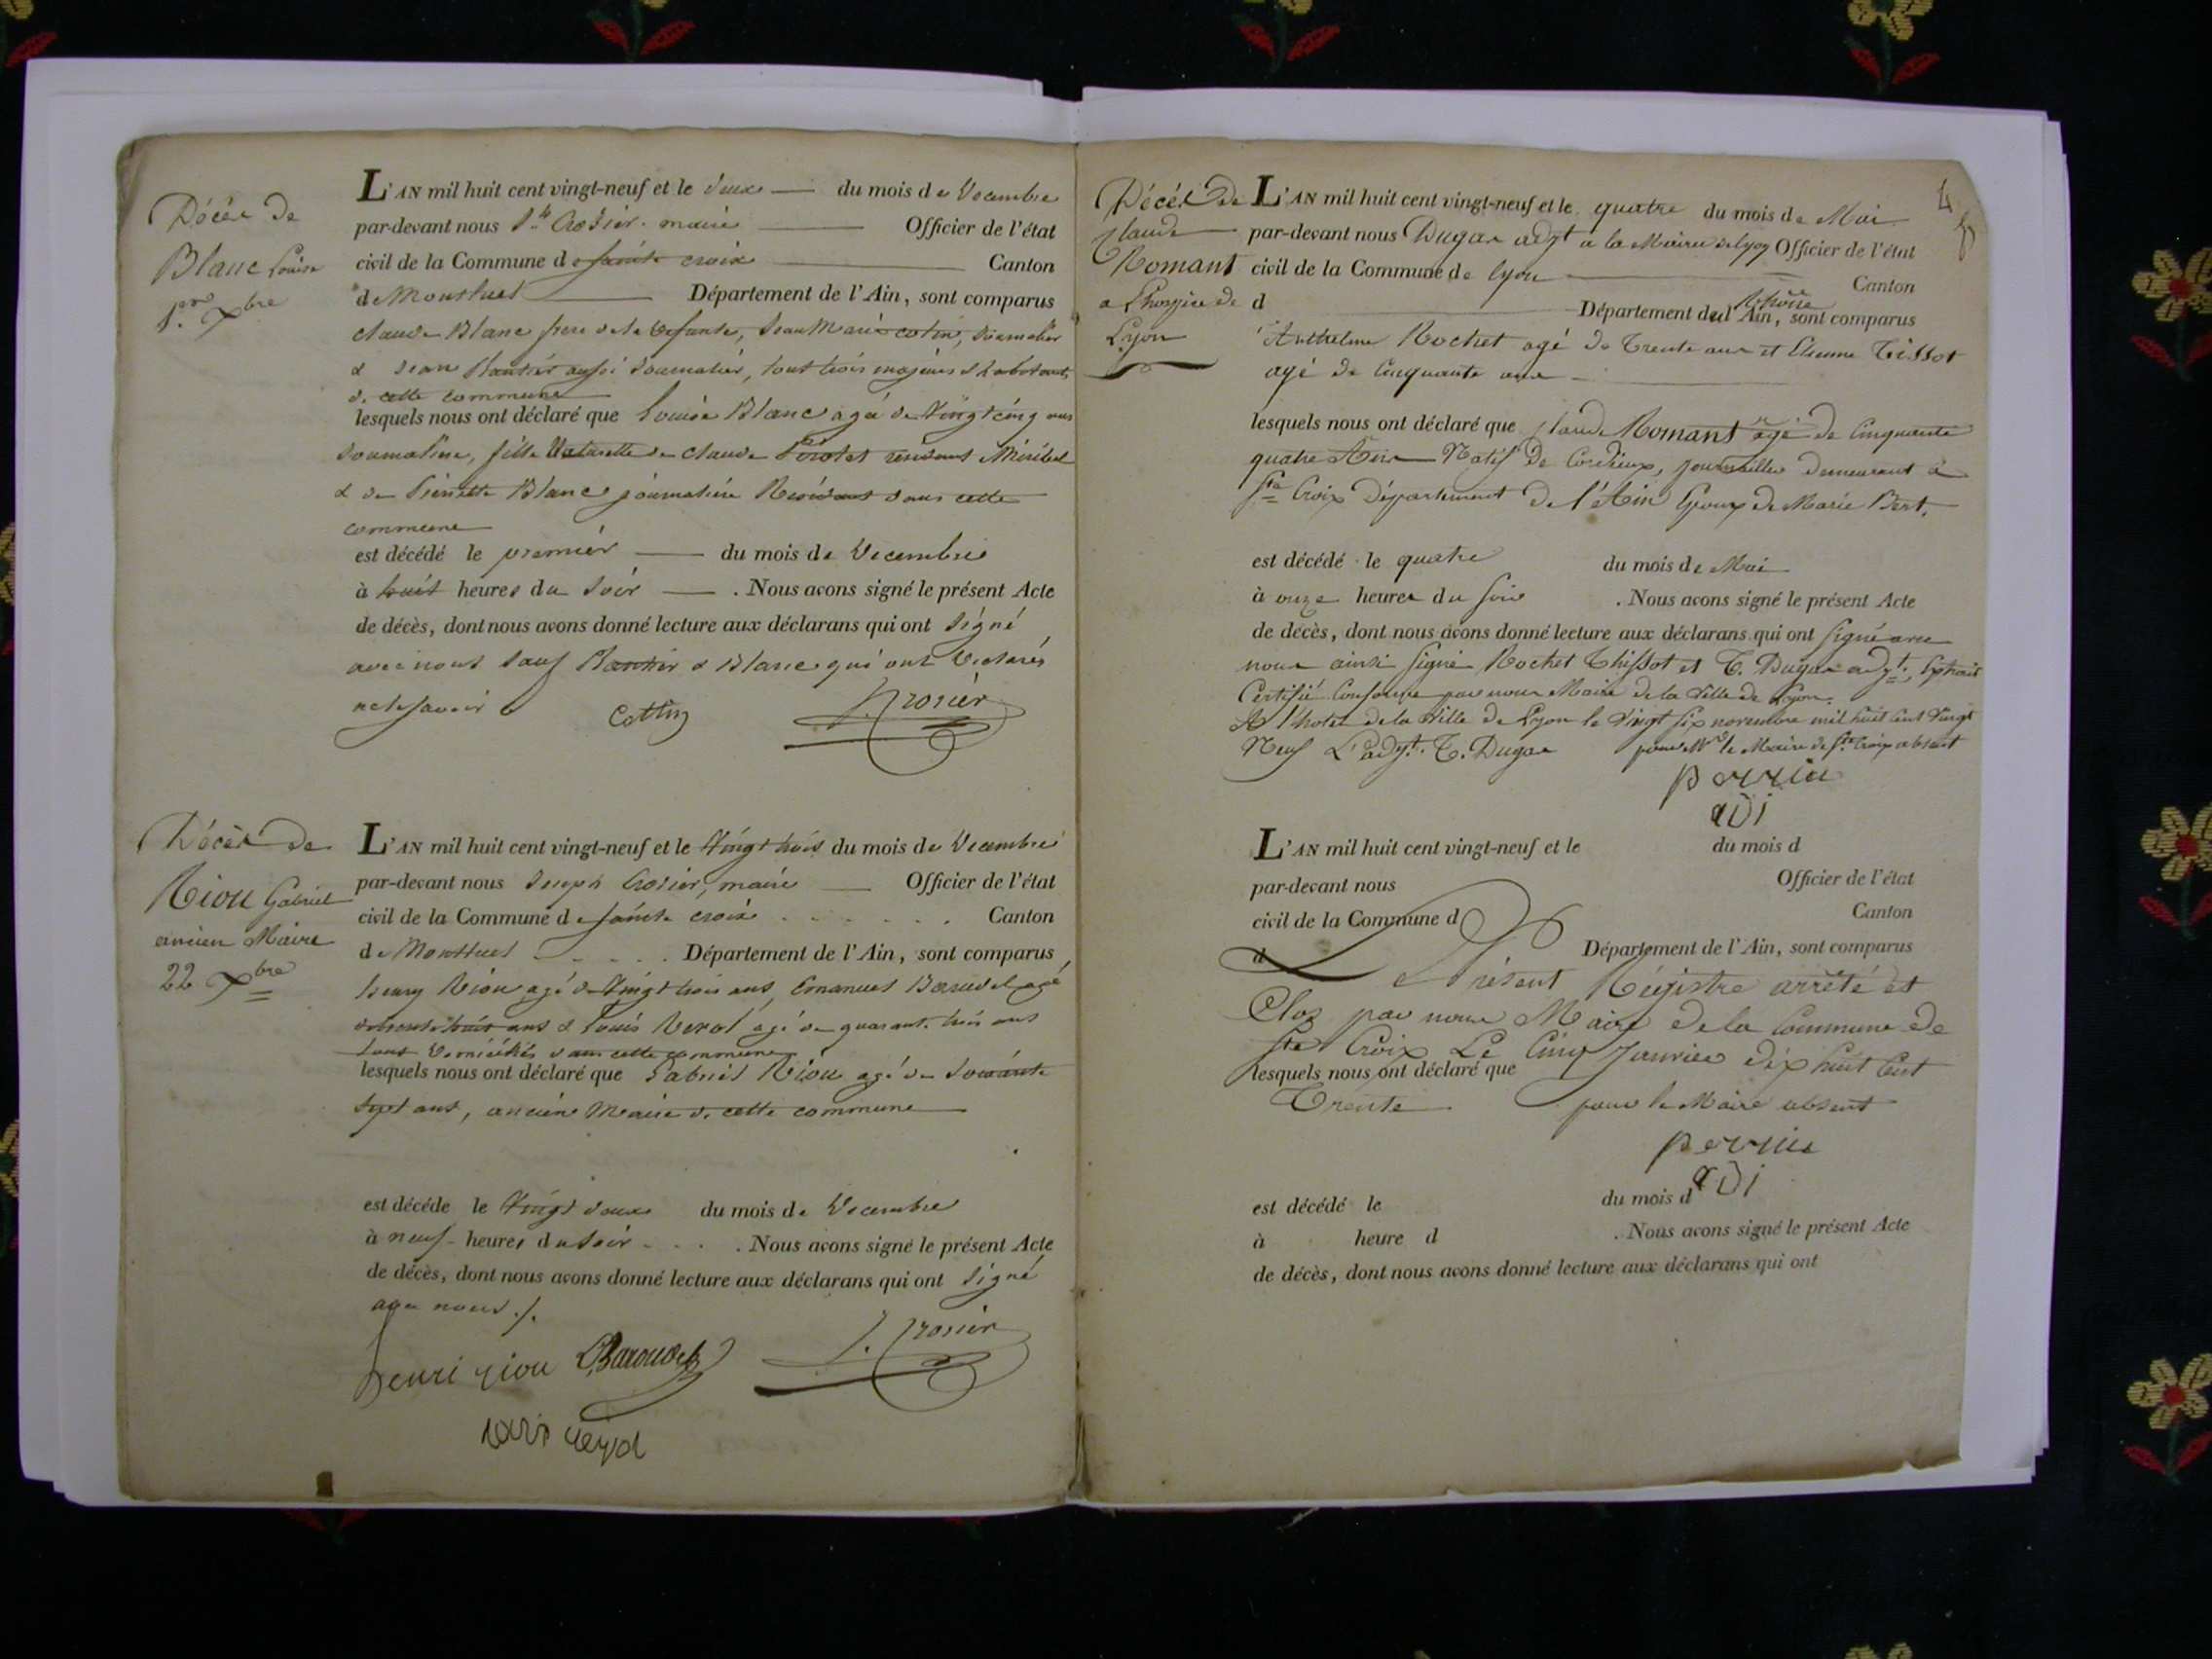 Décès de
Blanc Louise
1er. Xbre
L'AN mil huit cent vingt-neuf et le deux du mois de Decembre
par-devant nous Crosier maire Officier de l'état
civil de la Commune de sainte croix Canton
de Montluel Département de l'Ain, sont comparus
claude Blanc frere de la defunte, Jean Marie cotin, Journalier
& Jean Plantier aussi Journalier, tout trois majeurs & habitants
de cette commune
lesquels nous ont déclaré que Louise Blanc agée de Vingt cinq ans
Journaliere, fille Naturelle de claude résidant Miribel
& de Pierrette Blanc journaliére Residant dans cette
commune
est décédé le premier du mois de Decembre
à huit heures du soir . Nous avons signé le présent Acte
de décès, dont nous avons donné lecture aux déclarans qui ont signé
avec nous sauf Plantier & Blanc qui ont déclarés
ne le savoir
Cottin J. Crosier
Décès de
Riou Gabriel
ancien Maire
22 Xbre
L'AN mil huit cent vingt-neuf et le Vingt trois du mois de Decembre
par-devant nous Joseph Crosier, maire Officier de l'état
civil de la Commune de sainte croix Canton
de Montluel Département de l'Ain, sont comparus
henry Riou agé de Vingt trois ans, Emanuel Baroudel agé
de soixante huit ans & Louis Verol agé de quarante trois ans
tous domiciliés dans cette commune
lesquels nous ont déclaré que Gabriel Riou agé de soixante
sept ans, ancien Maire de cette commune
est décédé le Vingt deux du mois de Decembre
à neuf heures du soir . Nous avons signé le présent Acte
de décès, dont nous avons donné lecture aux déclarans qui ont signé
avec nous ./.
henri riou Baroudel J. Crosier
Louis
4
Décès de
Claude
Romant
a L'hospice de
Lyon
L'AN mil huit cent vingt-neuf et le quatre du mois de Mai
par-devant nous Dugas adjt a la Mairie de Lyon Officier de l'état
civil de la Commune de Lyon Canton
d Département du Rhône l'Ain, sont comparus
Anthelme Rochet agé de Trente ans et Etienne Tissot
agé de Cinquante ans
lesquels nous ont déclaré que Claude Romant agé de Cinquante
quatre Ans Natif de Cordieux, journallier demeurant à
Ste Croix Département de l'Ain Epoux de Marie Bert.
est décédé le quatre du mois de Mai
à onze heures du soir . Nous avons signé le présent Acte
de décès, dont nous avons donné lecture aux déclarans qui ont signé avec
nous ainsi signé Rochet Thissot et T. Dugas adjt. Extrait
Certifié Conforme par nous Maire de la Ville de Lyon.
A l'hotel de la Ville de Lyon le Vingt six novembre mil huit cent Vingt
Neuf L'adjt. T. Dugas pour Mr le Maire de Ste Croix absent
perrin
adj
L'AN mil huit cent vingt-neuf et le du mois d
par-devant nous Officier de l'état
civil de la Commune d Canton
d Département de l'Ain, sont comparus
Le Présent Régistre arrêté et
Clos par nous Maire de la Commune de
Ste Croix Le Cinq Janvier dix huit Cent
lesquels nous ont déclaré que
Trente pour le Maire absent
perrin
adj
est décédé le du mois d
à heure d . Nous avons signé le présent Acte
de décès, dont nous avons donné lecture aux déclarans qui ont